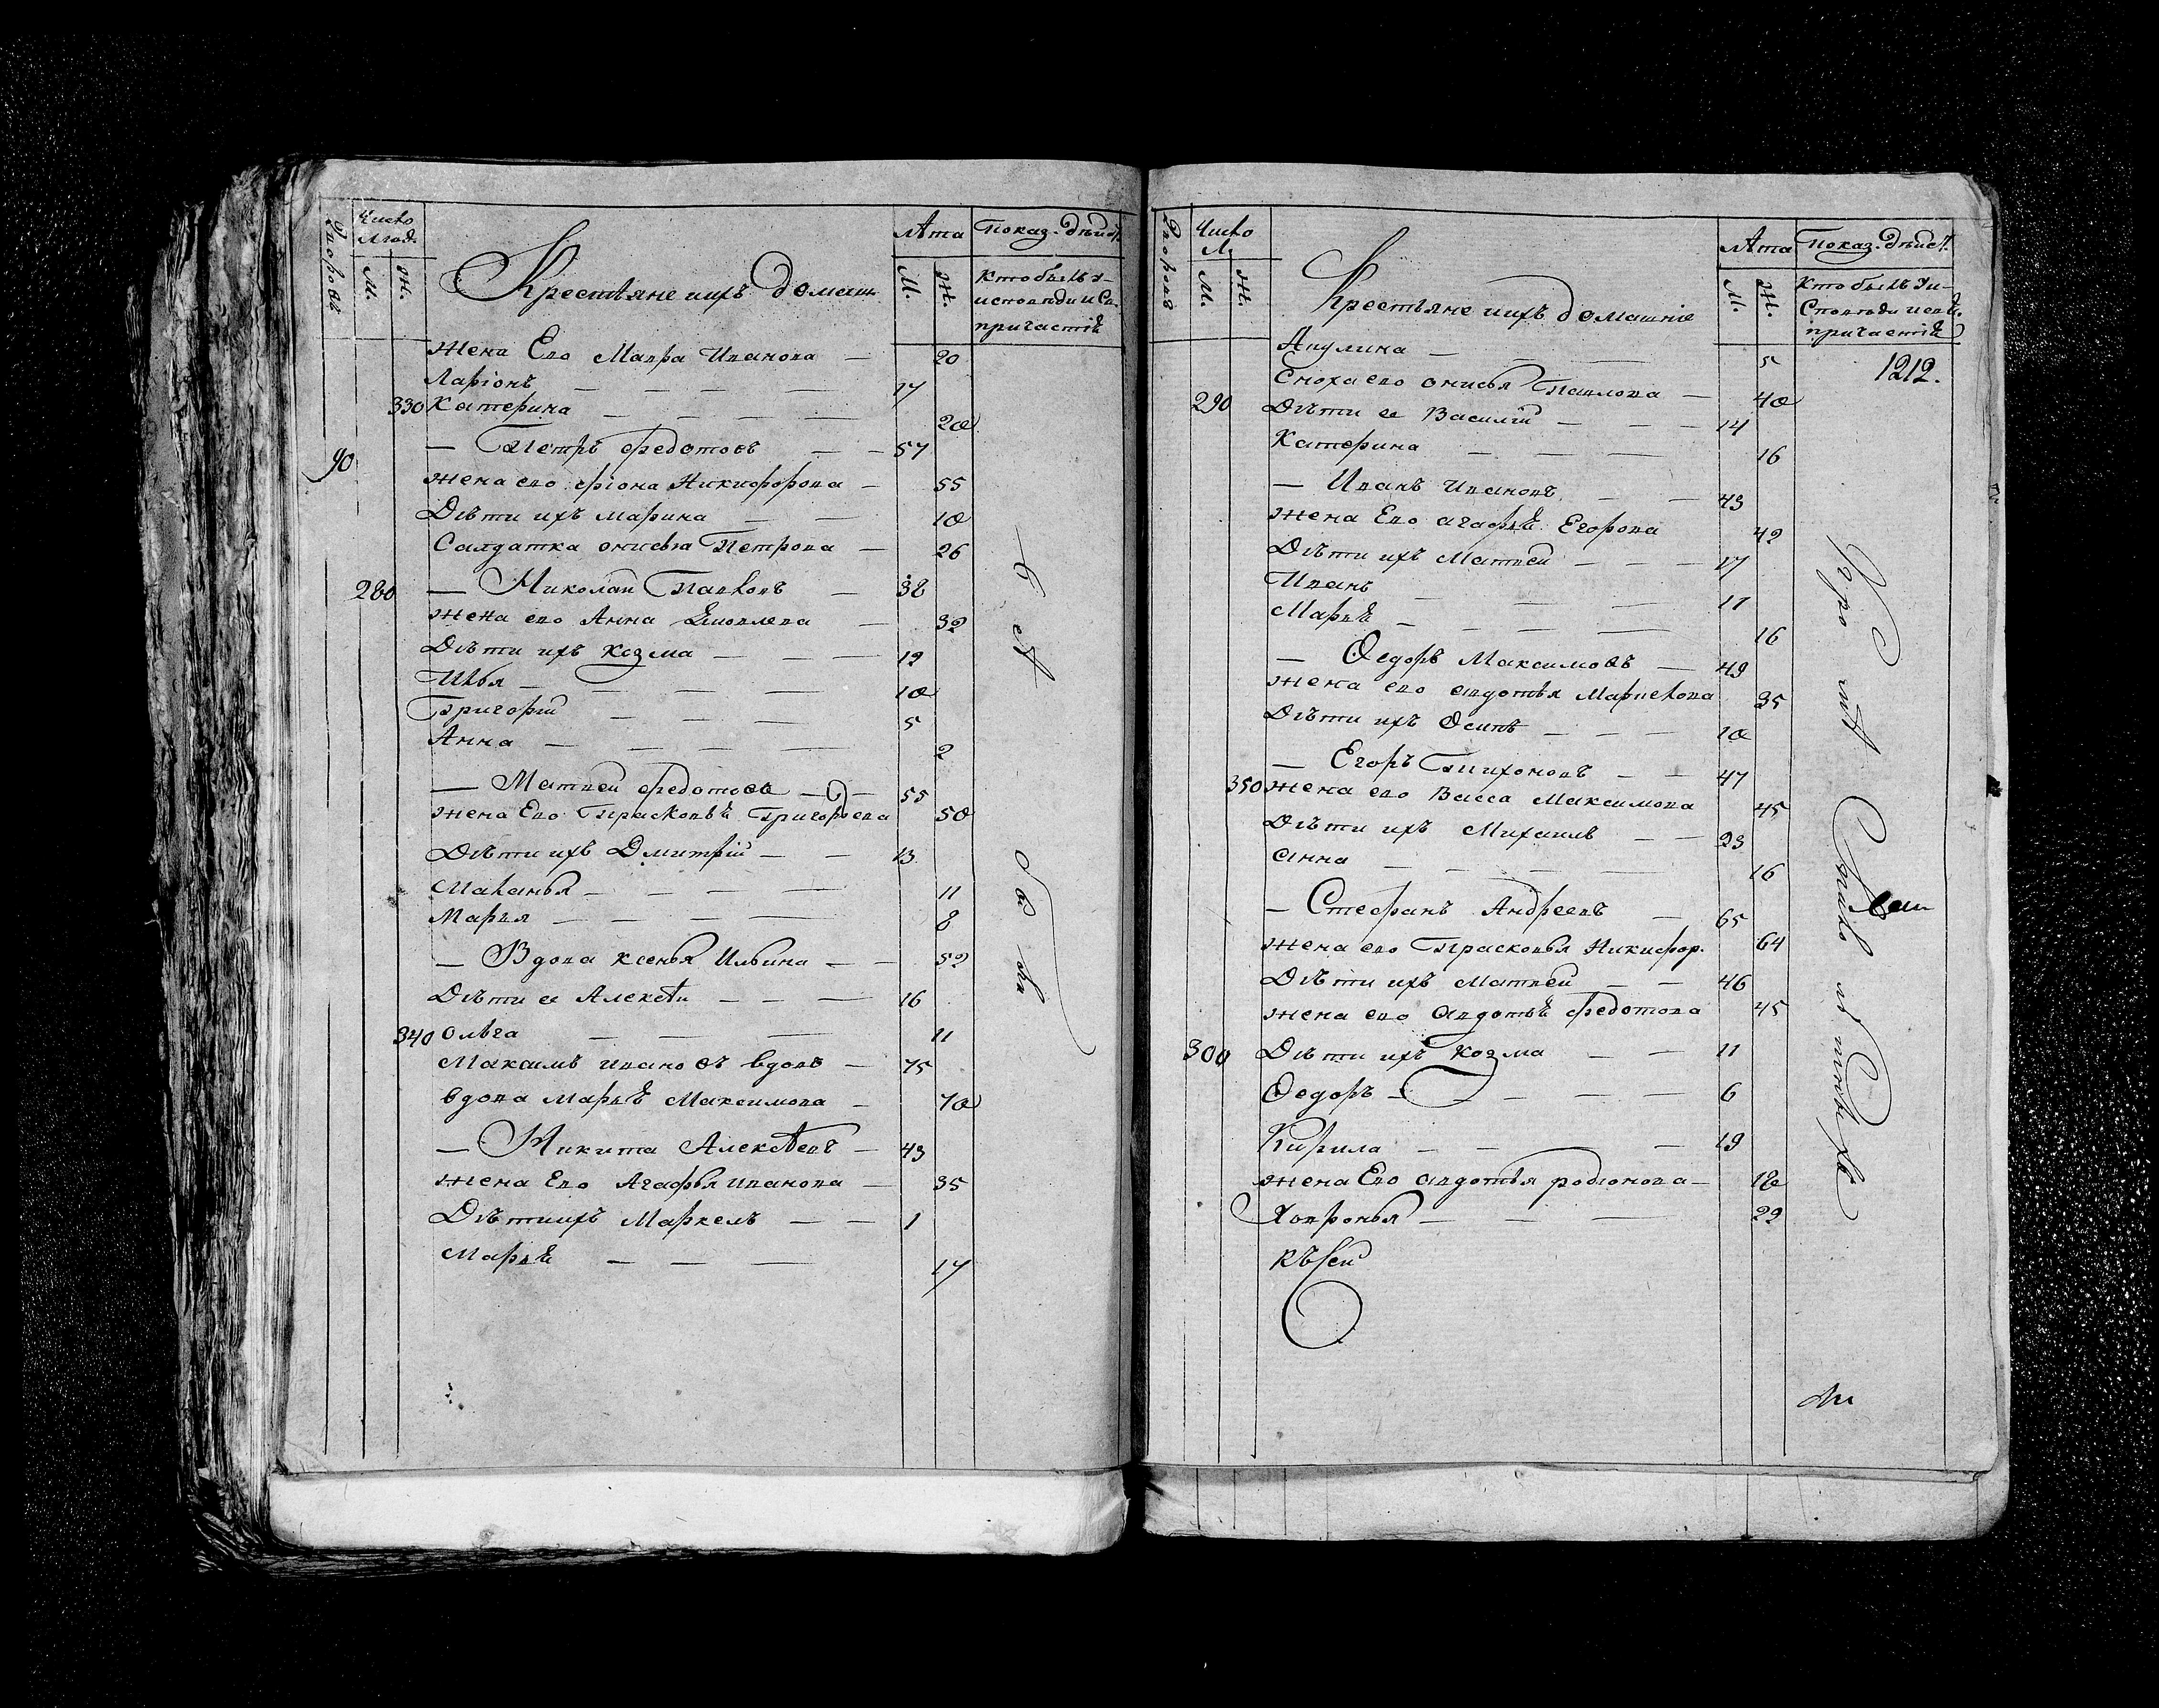 Дворовъ
Число
Люд.
М.
Ж.
Крестьяне иихъ домаш.
лѣта
М.
Ж.
Показ. дѣист.
Кто былъ у
исповѣди и Св.
причастія
Жена Ево Мавра Иванова — 20
Ларіонъ — 17
330 Катерина — 20
90 — Петръ Федотовъ — 57
Жена ево Фіона Никифорова — 55
Дѣти ихъ Марина — 10
Салдатка Анисья Петрова — 26
280 — Николай Павловъ — 38
Жена ево Анна Яковлева — 32
Дѣти ихъ Козма — 12
Илья — 10
Григорій — 5
Анна — 2
— Матвеи Федотовъ — 55
Жена Ево Прасковьѣ Григорьева 50
Дѣти ихъ Дмитрій — 13
Маланья — 11
Марья — 8
— Вдова Ксенья Ильина — 52
Дѣти ее Алексѣи — 16
340 Ольга — 11
Максимъ Ивановъ вдовъ — 75
вдова Марьѣ Максимова — 70
— Никита Алексѣевъ — 43
Жена Ево Агафья Иванова — 35
Дѣти ихъ Маркелъ — 1
Марьѣ — 17
Дворовъ
Число
Л.
М.
Ж.
Крестьяне иихъ домашніе
лѣта
М.
Ж.
Показ. дѣист.
Кто былъ у и
Споведи исвѣ.
причастіѣ
1212.
Акулина — 5
Сноха ево Анисья Павлова — 40
290 Дѣти ее Василій — 14
Катерина — 16
— Иванъ Ивановъ — 43
Жена Ево Агафьѣ Егорова 42
Дѣти ихъ Матвеи — 17
Иванъ — 11
Марьѣ — 16
— Ѳедоръ Максимовъ — 49
Жена ево Авдотья Маркелова 35
Дѣти ихъ Осипъ — 10
— Егоръ Тихоновъ — 47
350 Жена ево Васса Максимова 45
Дѣти ихъ Михаилъ — 23
Анна — 16
— Стефанъ Андреевъ — 65
Жена ево Прасковья Никифор. 64
Дѣти ихъ Матвеи — 46
Жена ево Авдотьѣ Федотова 45
300 Дѣти ихъ Козма — 11
Ѳедоръ — 6
Кирила — 19
Жена Ево Авдотья родіонова — 18
Ховронья — 22
къ сеи